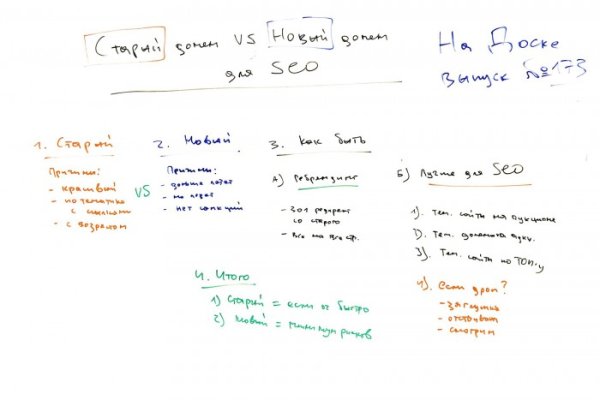 Старый домен VS Новый домен
для SEO
На Доске
Выпуск №173
1. Старый
Причины:
- красивый
- по тематике
с ссылками
- с возрастом
VS
2. Новый
Причины:
- дольше
- не
- нет санкций
3. Как быть
А) Ребрендинг
- 301 редирект
со старого
- Все на все стр.
Б) Лучше для SEO
1). Тем. сайты на аукционе
2). Тем. домена аукц.
3). Тем. сайты по ТОП-у
4). Если дроп?
- заглушка
-
- смотрим
4. Итого
1) Старый = если от быстро
2) Новый = минимум рисков